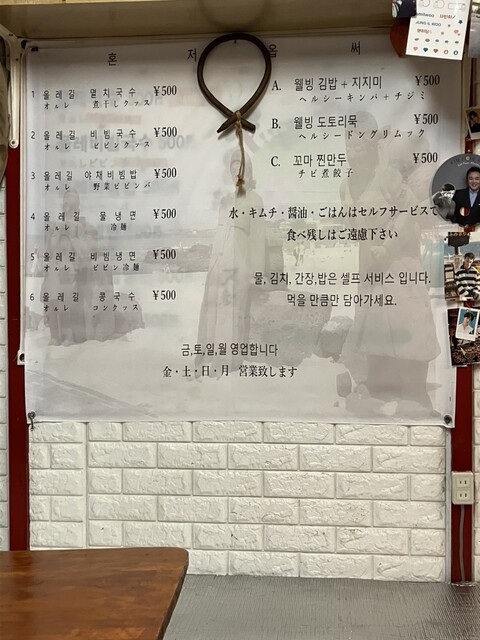 혼 저 옵 써
1 올레길 멸치국수 ¥500
オルレ 煮干しクッス
2 올레길 비빔국수 ¥500
オルレ ビビンクッス
3 올레길 야채비빔밥 ¥500
オルレ 野菜ビビンバ
4 올레길 물냉면 ¥500
オルレ 冷麺
5 올레길 비빔냉면 ¥500
オルレ ビビン冷麺
6 올레길 콩국수 ¥500
オルレ コンクッス
A. 웰빙 김밥 + 지지미 ¥500
ヘルシーキンパ + チヂミ
B. 웰빙 도토리묵 ¥500
ヘルシードングリムック
C. 꼬마 찐만두 ¥500
チビ煮餃子
水・キムチ・醤油・ごはんはセルフサービスで
食べ残しはご遠慮下さい
물, 김치, 간장,밥은 셀프 서비스 입니다.
먹을 만큼만 담아가세요.
금,토,일,월 영업합니다
金・土・日・月 営業致します